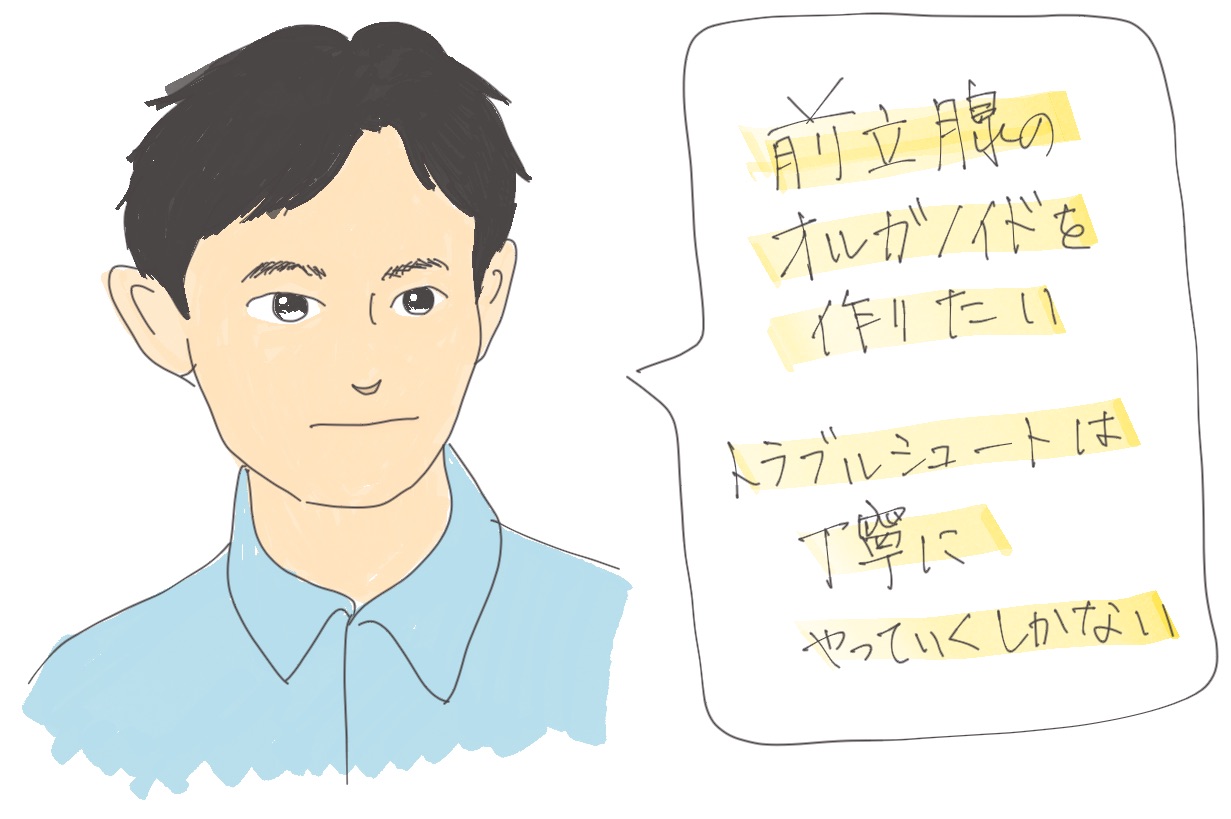 前立腺の
オルガノイドを
作りたい
トラブルシュートは
丁寧に
やっていくしかない